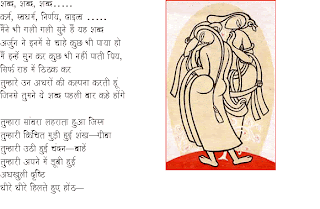 शब्द, शब्द, शब्द,.....
कर्म, स्वधर्म, निर्णय, दायित्व .....
मैंने भी गली गली सुने हैं यह शब्द
अर्जुन ने इनमें से चाहे कुछ भी पाया हो
मैं इन्हें सुन कर कुछ भी नहीं पाती प्रिय,
सिर्फ राह में ठिठक कर
तुम्हारे उन अधरों की कल्पना करती हूं
जिनसे तुमने ये शब्द पहली बार कहे होंगे

तुम्हारा सांवरा लहराता हुआ जिस्म
तुम्हारी किंचित मुड़ी हुई शंख-ग्रीवा
तुम्हारी उठी हुई चंदन-बाहें
तुम्हारी अपने में डूबी हुई
अधखुली दृष्टि
धीरे धीरे हिलते हुए होंठ-